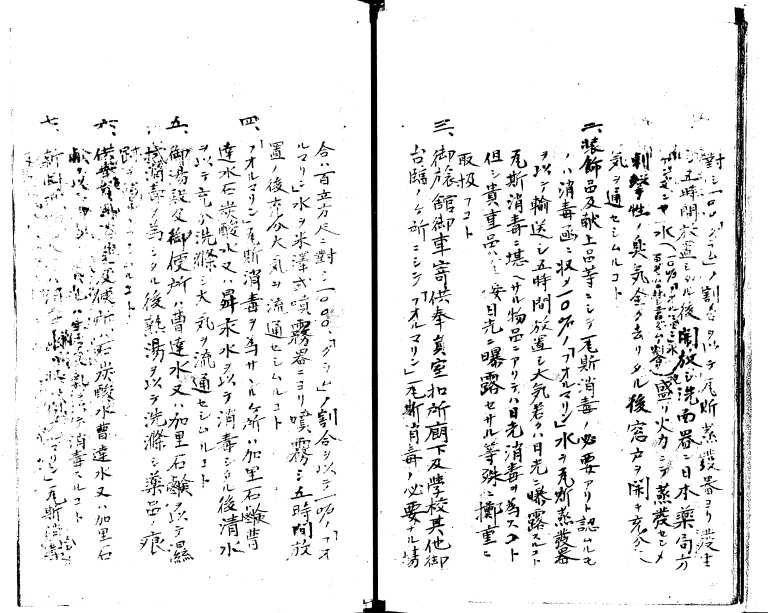 対シ二〇〇「グラム」ノ割合ヲ以テ瓦斯蒸発器ヨリ発生
シ五時間放置シタル後開放シ洗面器ニ日本薬局方
アンモニヤ水 盛リ火力ニテ蒸発セシメ
刺撃性ノ臭気全ク去リタル後窓戸ヲ開キ充分
気ヲ通セシムルコト
二、装飾品及献上品等ニシテ瓦斯消毒ノ必要アリト認ムルモ
ノハ消毒函ニ収メ一〇%ノ「フオルマリン」水ヲ瓦斯蒸発器
ヲ以テ輸送シ五時間放置シ大気若クハ日光ニ曝露スルコト
瓦斯消毒ニ堪ヘサル物品ニアリテハ日光消毒ヲ為スコト
但シ貴重品ハ 日光ニ曝露セサル等殊ニ鄭重ニ
取扱フコト
三、御旅館御車寄供奉員室扣所廊下及学校其他御
台臨ケ所ニシテ「フオルマリン」瓦斯消毒ノ必要ナル場
合ハ百立方尺ニ対シ二〇〇「グラム」ノ割合ヲ以テ一%ノ「フオ
ルマリン」水ヲ米澤式噴霧器ニヨリ噴霧シ五時間放
置ノ後充分大気ヲ流通セシムルコト
四、「フオルマリン」瓦斯消毒ヲ為サヽルケ所ハ加里石鹸曹
達水石炭酸水又ハ昇汞水ヲ以テ消毒シタル後清水
ヲ以テ充分洗滌シ大気ヲ流通セシムルコト
五、御湯殿及御便所ハ曹達水又ハ加里石鹸ヲ以テ湿
消毒ヲ為シタル後熱湯ヲ以テ洗滌シ薬品ノ痕
コト
六、供奉 便所ハ石炭酸水曹達水又ハ加里石
鹸 以テ消毒スルコト
七、新 瓦斯